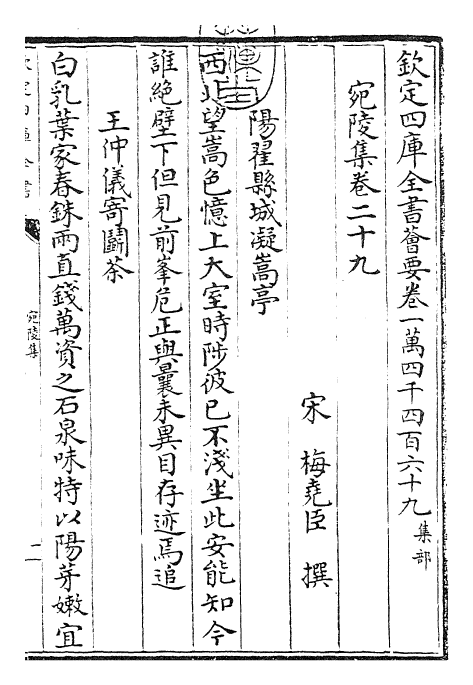 欽定四庫全書薈要卷一萬四千四百六十九集部
宛陵集卷二十九
宋 梅堯臣 撰
陽翟縣城凝嵩亭
西北望嵩色憶上大室時陟彼已不淺坐此安能知今
誰絶壁下但見前峯危正與曩未異目存迹焉追
王仲儀寄鬭茶
白乳葉家春銖兩直錢萬資之石泉味特以陽芽嫩宜
宛陵集